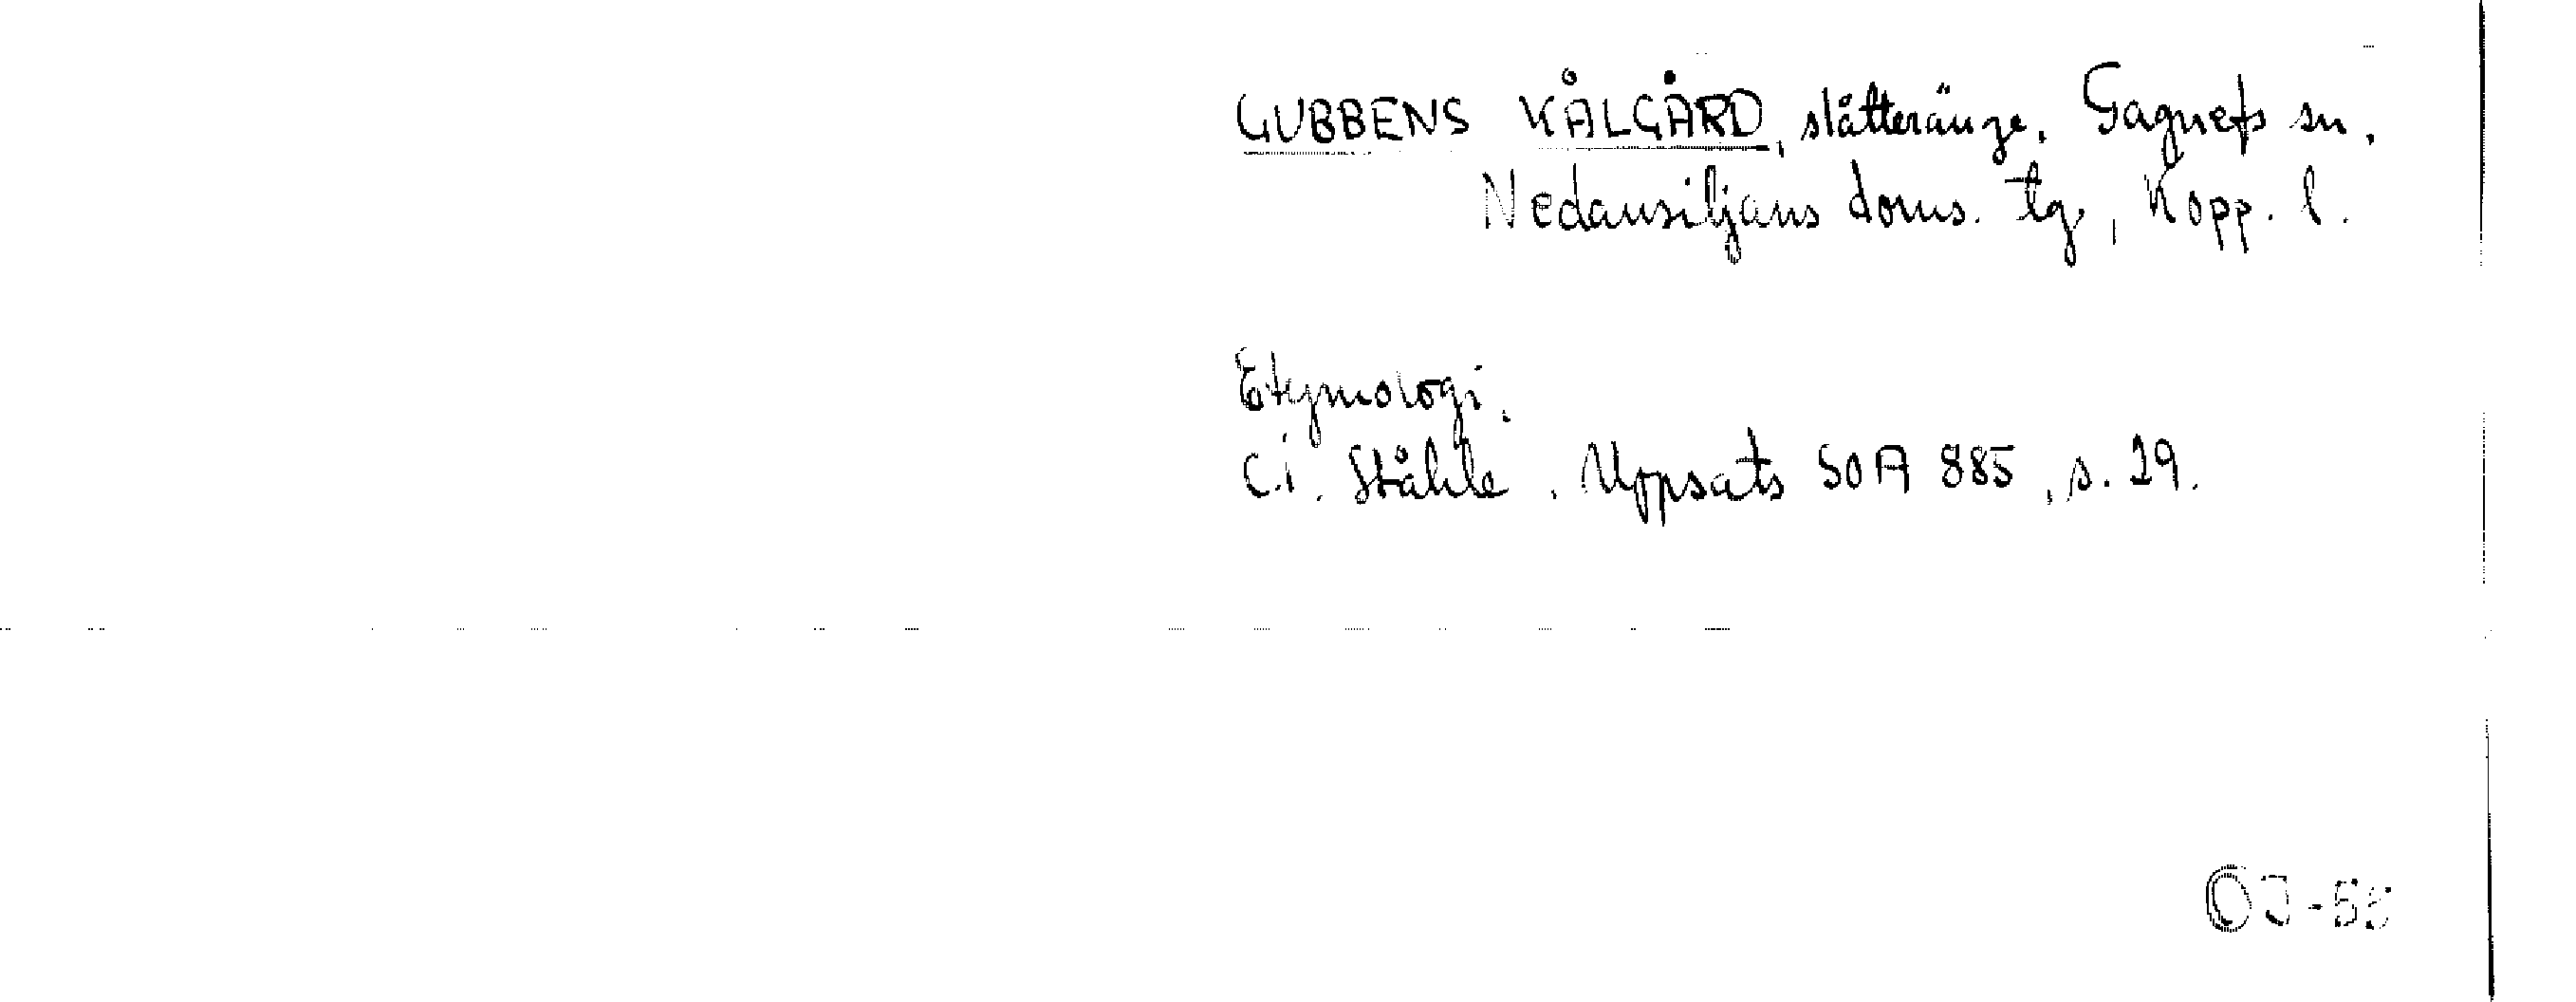 GUBBENS KÅLGÅRD, slåtteränge. Gagnefs sn.
Nedansiljans doms. tg, Kopp. l.
Etymologi.
C.I. Ståhle. Uppsats SOA 885, s. 29.